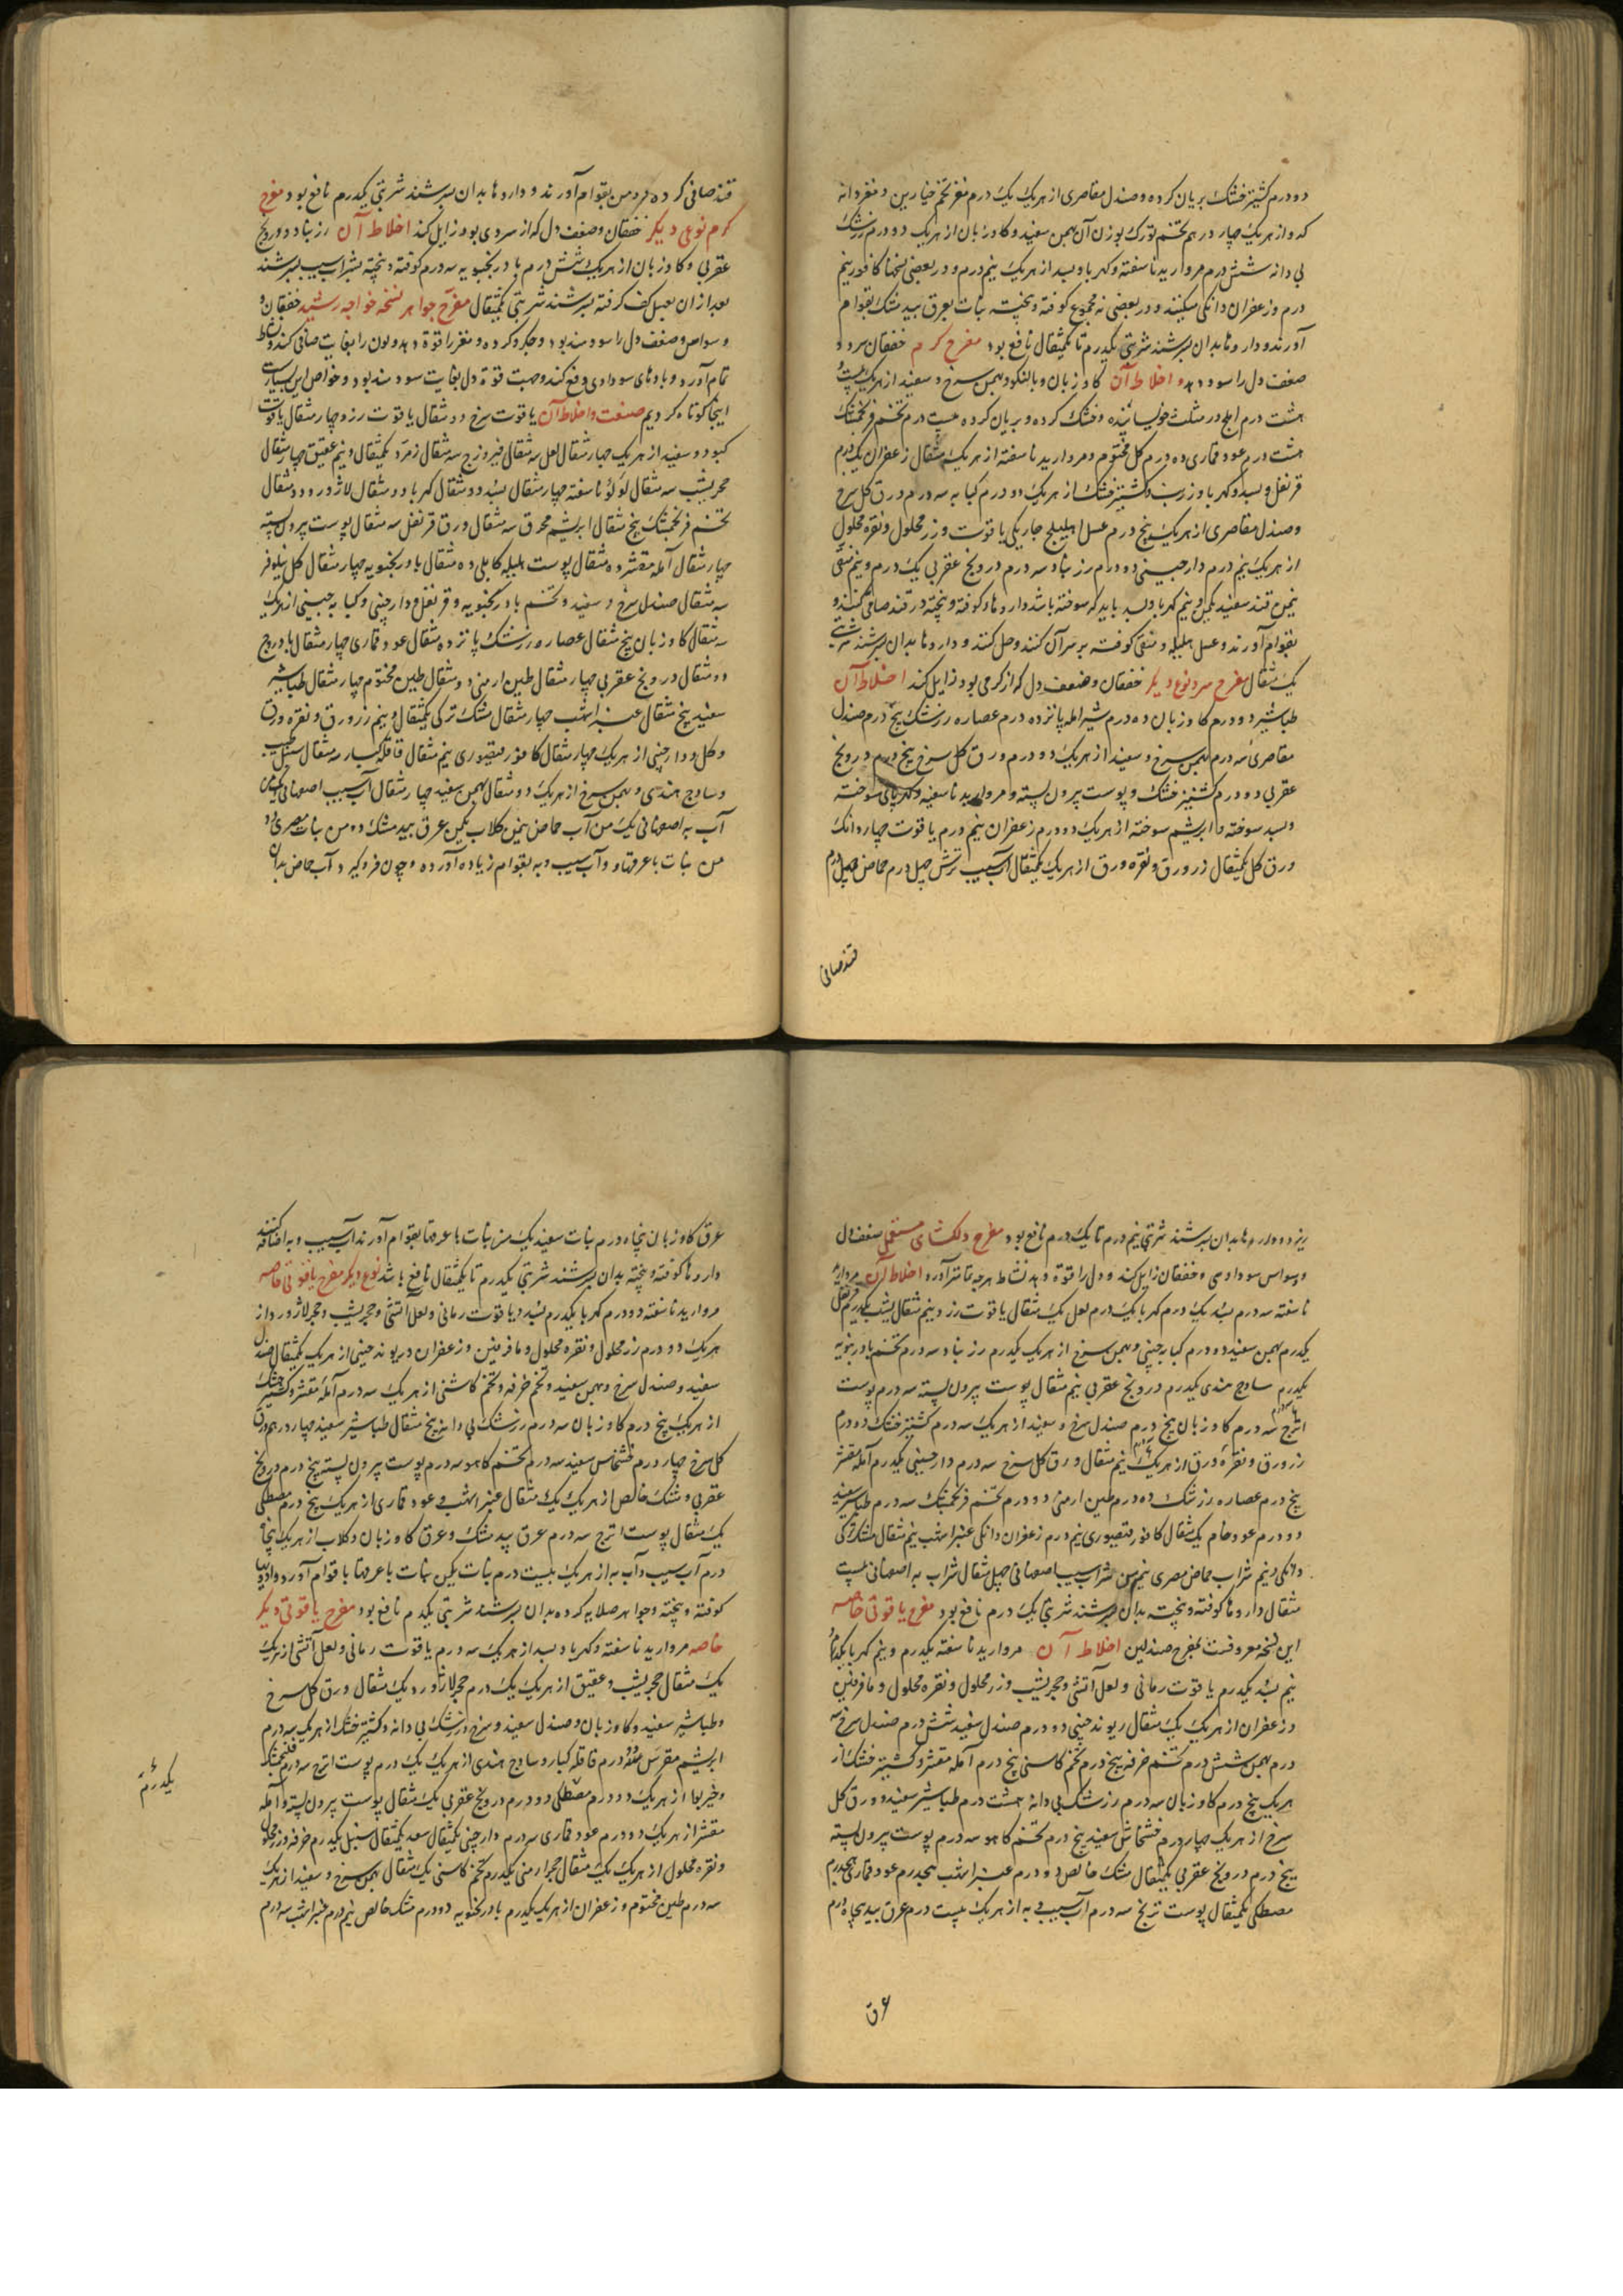 دو درم کشنیز خشک بریان کرده و صندل مقاصری از هریک یک درم مغز تخم خیارین و مغز دانه
کدو از هریک چهار درهم تخم تورک بوزن آن بهمن سفید و کاوزبان از هریک دو درم زرشک
بی دانه شش درم مروارید ناسفته و کهربا و بسد از هریک نیم درم و در بعضی نسخها کافور نیم
درم و زعفران دانکی میکنند و در بعضی نه مجموع کوفته و پخته نبات بعرق بید مشک بقوام
آورند و داروها بدان بسرشند شربتی یکدرم تا یکمثقال نافع بود مفرح کرم خفقان سرد و
ضعف دل را سود دهد و اخلاط آن کاوزبان و بالنکو و بهمن سرخ و سفید از هریک
هشت درم املج در مثلث خوسانیده و خشک کرده و بریان کرده بیست درم تخم فرنجمشک
هشت درم عود قماری ده درم کل مختوم و مروارید ناسفته از هریک مثقال زعفران یک درم
قرنفل و بسد و کهربا و زرنب و کشنیز خشک از هریک دو درم کبابه سه درم ورق کل سرخ
و صندل مقاصری از هریک پنج درم عسل اهلیلج یاقوت و زر محلول و نقره محلول
از هریک نیم درم دارچینی دو درم زرنباد سه درم درونج عقربی یک درم و نیم منقی
نیمن قند سفید یکمن و نیم کهربا و بسد باید که سوخته باشد داروها کوفته و پخته در قند صافی کنند و
بقوام آورند و عسل هلیله و منقی کوفته بر سر آن کنند و حل کنند و داروها بدان بسرشند شربتی
یک مثقال مفرح سرد نوع دیکر خفقان و ضعف دل که از کرمی بود زایل کند اخلاط آن
طباشیر دو درم کاوزبان ده درم شیر املج پانزده درم عصاره زرشک پنج درم صندل
مقاصری سه درم بهمن سرخ و سفید از هریک دو درم ورق کل سرخ پنج درم درونج
عقربی دو درم کشنیز خشک و پوست پرون پسته و مروارید ناسفته و کهربای سوخته
و بسد سوخته و ابریشم سوخته از هریک دو درم زعفران نیم درم یاقوت چهار دانک
ورق کل یکمثقال زر ورق و نقره ورق از هریک یکمثقال آب سیب ترش چهل درم حماض چهل درم
قند صافی
قند صافی کرده من بقوام آورند و داروها بدان بسرشند شربتی یکدرم نافع بود مفرح
کرم نوعی دیکر خفقان و ضعف دل که از سردی بود زایل کند اخلاط آن زرنباد و درونج
عقربی و کاوزبان از هریک شش درم بادرنجبویه سه درم کوفته و پخته بشراب سیب بسرشند
بعد از ان بعسل کف کرفته بسرشند شربتی یکمثقال مفرح جواهر نسخه خواجه رشید خفقان و
وسواس و ضعف دل را سودمند بود و جگر و کرده و مغز را قوة دهد و لون را بغایت صافی کند و نشاط
تمام آورد و بادهای سوداوی دفع کند و جهت قوة دل بغایت سودمند بود و خواص این بسیارست
اینجا کوتاه کردیم صنعت و اخلاط آن یاقوت سرخ دو مثقال یاقوت زرد چهار مثقال یاقوت
کبود و سفید از هریک چهار مثقال لعل سه مثقال فیروزج سه مثقال زمرد یکمثقال و نیم عقیق چهار مثقال
حجر یشب سه مثقال لؤلؤ ناسفته چهار مثقال بسد دو مثقال کهربا دو مثقال لاژورد دو مثقال
تخم فرنجمشک پنج مثقال ابریشم محرق سه مثقال ورق قرنفل سه مثقال پوست پرون پسته
چهار مثقال آمله مقشر ده مثقال پوست هلیله کابلی ده مثقال بادرنجبویه چهار مثقال کل نیلوفر
سه مثقال صندل سرخ و سفید و تخم بادرنجبویه و قرنفل و دارچینی و کبابه چینی از هریک
سه مثقال کاوزبان پنج مثقال عصاره زرشک پانزده مثقال عود قماری چهار مثقال
دو مثقال درونج عقربی چهار مثقال طین ارمنی دو مثقال طین مختوم چهار مثقال طباشیر
سفید پنج مثقال عنبر اشهب چهار مثقال مشک ترکی یکمثقال و نیم زر ورق و نقره ورق
و کل و دارچینی از هریک چهار مثقال کافور قیصوری نیم مثقال قاقله کبار سه مثقال سنبل
و سادج هندی و بهمن سرخ از هریک دو مثقال بهمن سفید چهار مثقال آب سیب اصفهانی
آب به اصفهانی یک من آب حماض نیمن کلاب یکمن عرق بید مشک ده من نبات مصری دو
من نبات با عرقها و آب سیب و به بقوام زیاده آورده و چون فرو کیرد آب حماض بدان
ریزد و داروها بدان بسرشند شربتی نیم درم تا یک درم نافع بود مفرح دلکشای ضعف دل
و وسواس سوداوی و خفقان زایل کند و دل را قوة دهد نشاط هرچه تمامتر آورد اخلاط آن مروارید
ناسفته سه درم بسد یک درم کهربا یک درم لعل یک مثقال یاقوت زرد نیم مثقال یشب یکدرم
یکدرم بهمن سفید دو درم کبابه چینی و بهمن سرخ از هریک یکدرم زرنباد سه درم تخم بادرنبویه
یکدرم سادج هندی یکدرم درونج عقربی نیم مثقال پوست پرون پسته سه درم پوست
اترج سه درم کاوزبان پنج درم صندل سرخ و سفید از هریک سه درم کشنیز خشک دو درم
زر ورق و نقره ورق از هریک نیم مثقال ورق کل سرخ سه درم دارچینی یکدرم آمله مقشر
پنج درم عصاره زرشک ده درم طین ارمنی دو درم تخم فرنجمشک سه درم طباشیر سفید
دو درم عود خام یک مثقال کافور قیصوری نیم درم زعفران دانکی عنبر اشهب نیم مثقال مشک ترکی
دانکی و نیم شراب حماض مصری نیم من شراب سیب اصفهانی چهل مثقال شراب به اصفهانی بیست
مثقال داروها کوفته و پخته بدان بسرشند شربتی یک درم نافع بود مفرح یاقوتی خاصه
این نسخه معروفست بمفرح صندلین اخلاط آن مروارید ناسفته یکدرم و نیم کهربا
نیم بسد یکدرم یاقوت رمانی و لعل آتشی و حجر یشب و زر محلول و نقره محلول و مافرفین
و زعفران از هریک یک مثقال ریوند چینی دو درم صندل سفید شش درم صندل سرخ سه
درم بهمن شش درم تخم خرفه پنج درم تخم کاسنی پنج درم آمله مقشر و کشنیز خشک از
هریک پنج درم کاوزبان سه درم زرشک بی دانه هشت درم طباشیر سفید و ورق کل
سرخ از هریک چهار درم خشخاش سفید پنج درم تخم کاهو سه درم پوست پرون پسته
پنج درم درونج عقربی یکمثقال مشک خالص دو درم عنبر اشهب عود قماری
مصطکی یکمثقال پوست ترنج سه درم آب سیب و به از هریک بیست درم عرق بید پنجاه درم
عرق
عرق کاوزبان پنجاه درم نبات سفید یک من نبات با عرقها بقوام آورند آب سیب و به اضافه کنند
داروها کوفته و پخته بدان بسرشند شربتی یکدرم تا یکمثقال نافع باشد نوع دیکر مفرح یاقوتی خاصه
مروارید ناسفته دو درم کهربا یکدرم بسد و یاقوت رمانی و لعل آتشی و حجر یشب و حجر لاژورد از
هریک دو درم زر محلول و نقره محلول و مافرفین و زعفران و ریوند چینی از هریک یکمثقال صندل
سفید و صندل سرخ و بهمن سفید و تخم خرفه و تخم کاسنی از هریک سه درم آمله مقشر و کشنیز خشک
از هریک پنج درم کاوزبان سه درم زرشک بی دانه پنج مثقال طباشیر سفید چهار درهم ورق
کل سرخ چهار درم خشخاش سفید سه درم تخم کاهو سه درم پوست پرون پسته پنج درم درونج
عقربی و مشک خالص از هریک یک مثقال عنبر اشهب و عود قماری از هریک پنج درم مصطکی
یک مثقال پوست اترج سه درم عرق بید مشک و عرق کاوزبان و کلاب از هریک پنجاه
درم آب سیب و آب به از هریک بیست درم نبات یکمن نبات با عرقها با قوام آورد و ادویها
کوفته و پخته و جواهر صلایه کرده بدان بسرشند شربتی یکدم نافع بود مفرح یاقوتی دیکر
خاصه مروارید ناسفته و کهربا و بسد از هریک سه درم یاقوت رمانی و لعل آتشی از هریک
یک مثقال حجر یشب و عقیق از هریک یک درم حجر لاژورد یک مثقال ورق کل سرخ
و طباشیر سفید و کاوزبان و صندل سفید و سرخ و زرشک بی دانه و کشنیز خشک از هریک سه درم
ابریشم مقرض درم قاقله کبار و سادج هندی از هریک یک درم پوست اترج سه درم فرنجمشک
و خیربوا از هریک دو درم مصطکی دو درم درونج عقربی یک مثقال پوست پرون پسته و آمله
مقشر از هریک دو درم عود قماری سه درم دارچینی یکمثقال سعد یکمثقال سنبل یکدرم خرفه و زر محلول
و نقره محلول از هریک یک مثقال حجر ارمنی یکدرم تخم کاسنی یک مثقال بهمن سرخ و سفید از هریک
سه درم طین مختوم و زعفران از هریک یکدرم بادرنجبویه دو درم مشک خالص نیم درم عنبر اشهب سه درم
یکدرم